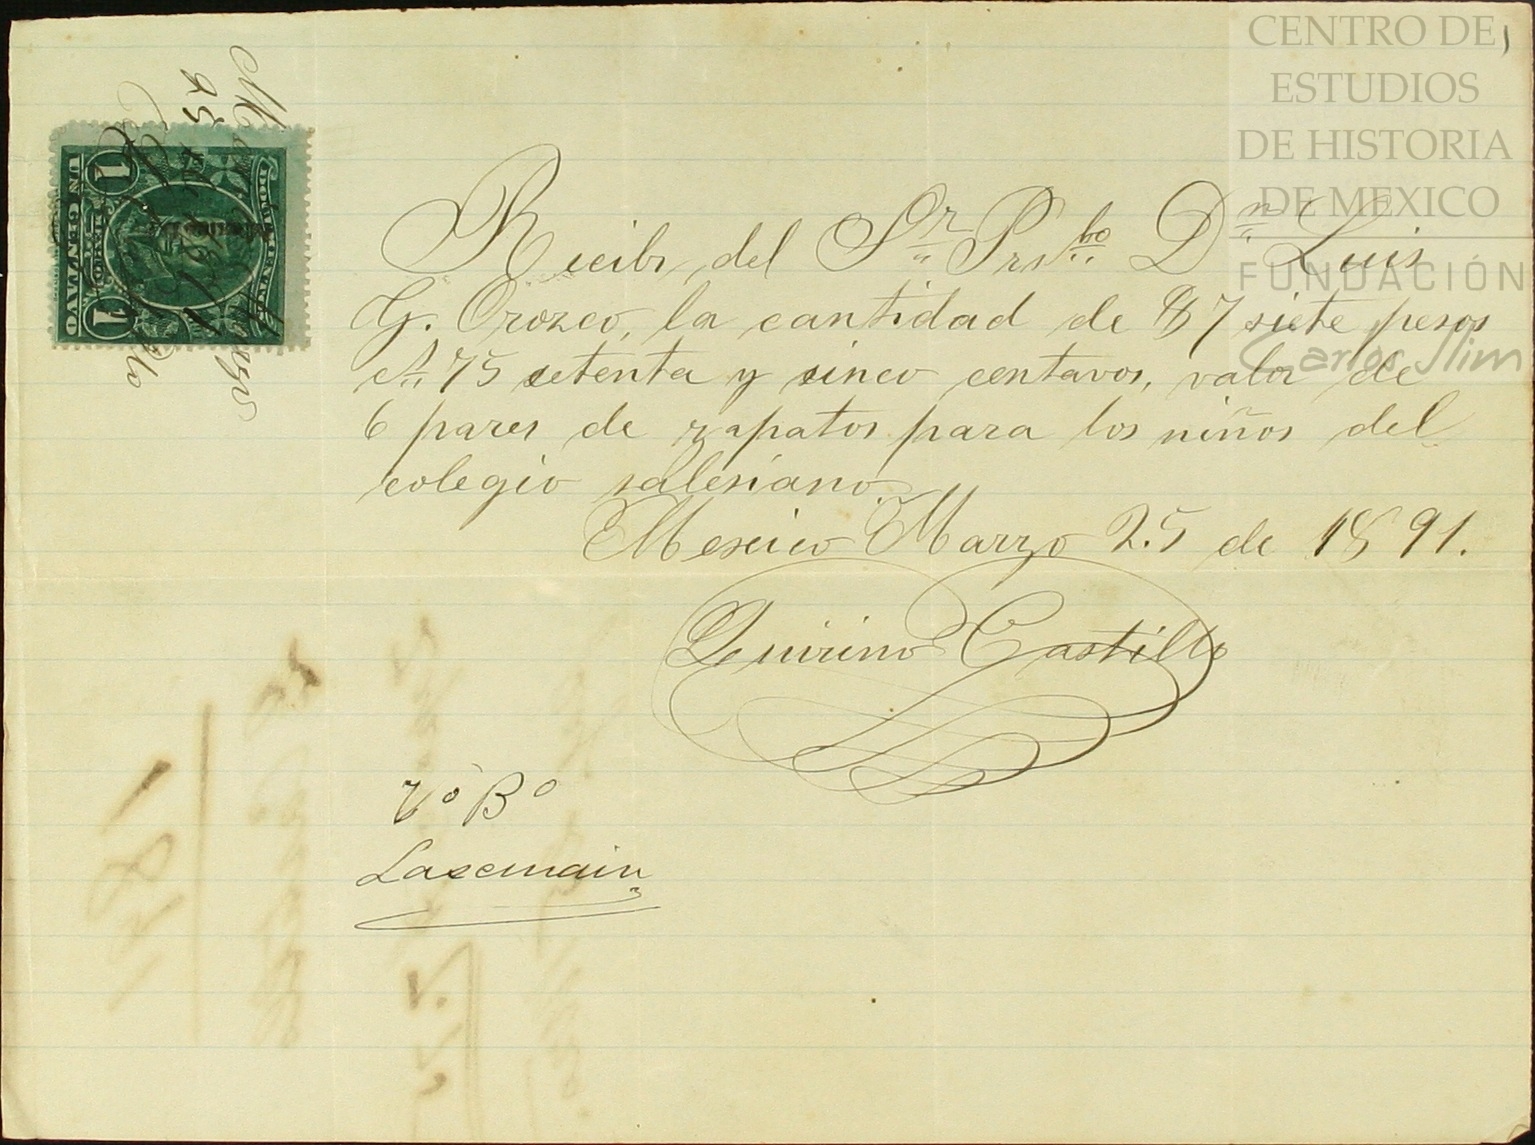 CENTRO DE
ESTUDIOS
DE HISTORIA
DE MEXICO
FUNDACIÓN
Carlos Slim
Recibí del Sr. Prsbo. Dn. Luis
G. Orozco, la cantidad de $7 siete pesos
cts. 75 setenta y sinco centavos, valor de
6 pares de zapatos para los niños del
colegio salesiano.
Mexico Marzo 25 de 1891.
Quirino Castillo
Vo Bo
UN CENTAVO
1
1